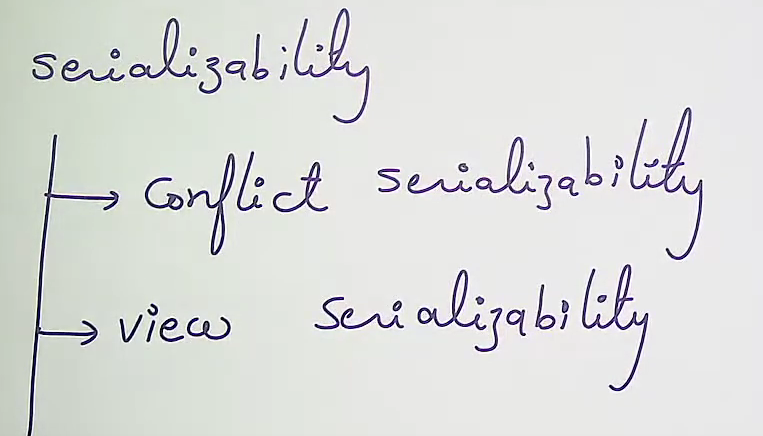 serializability
→ Conflict serializability
→ view serializability